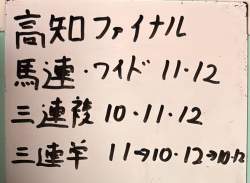 高知ファイナル
馬連・ワイド 11・12
三連複 10・11・12
三連単 11→10・12→10・12